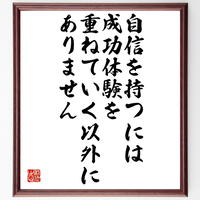 自信を持つには
成功体験を
重ねていく以外に
ありません